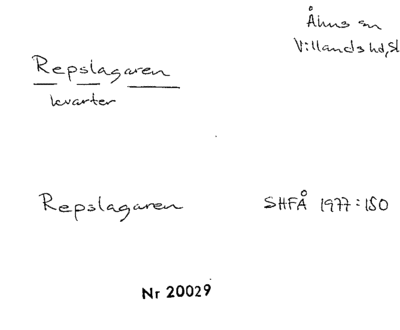 Åhus sn
Villands hd, Sk
Repslagaren
kvarter
Repslagaren SHFÅ 1977:150
Nr 20029